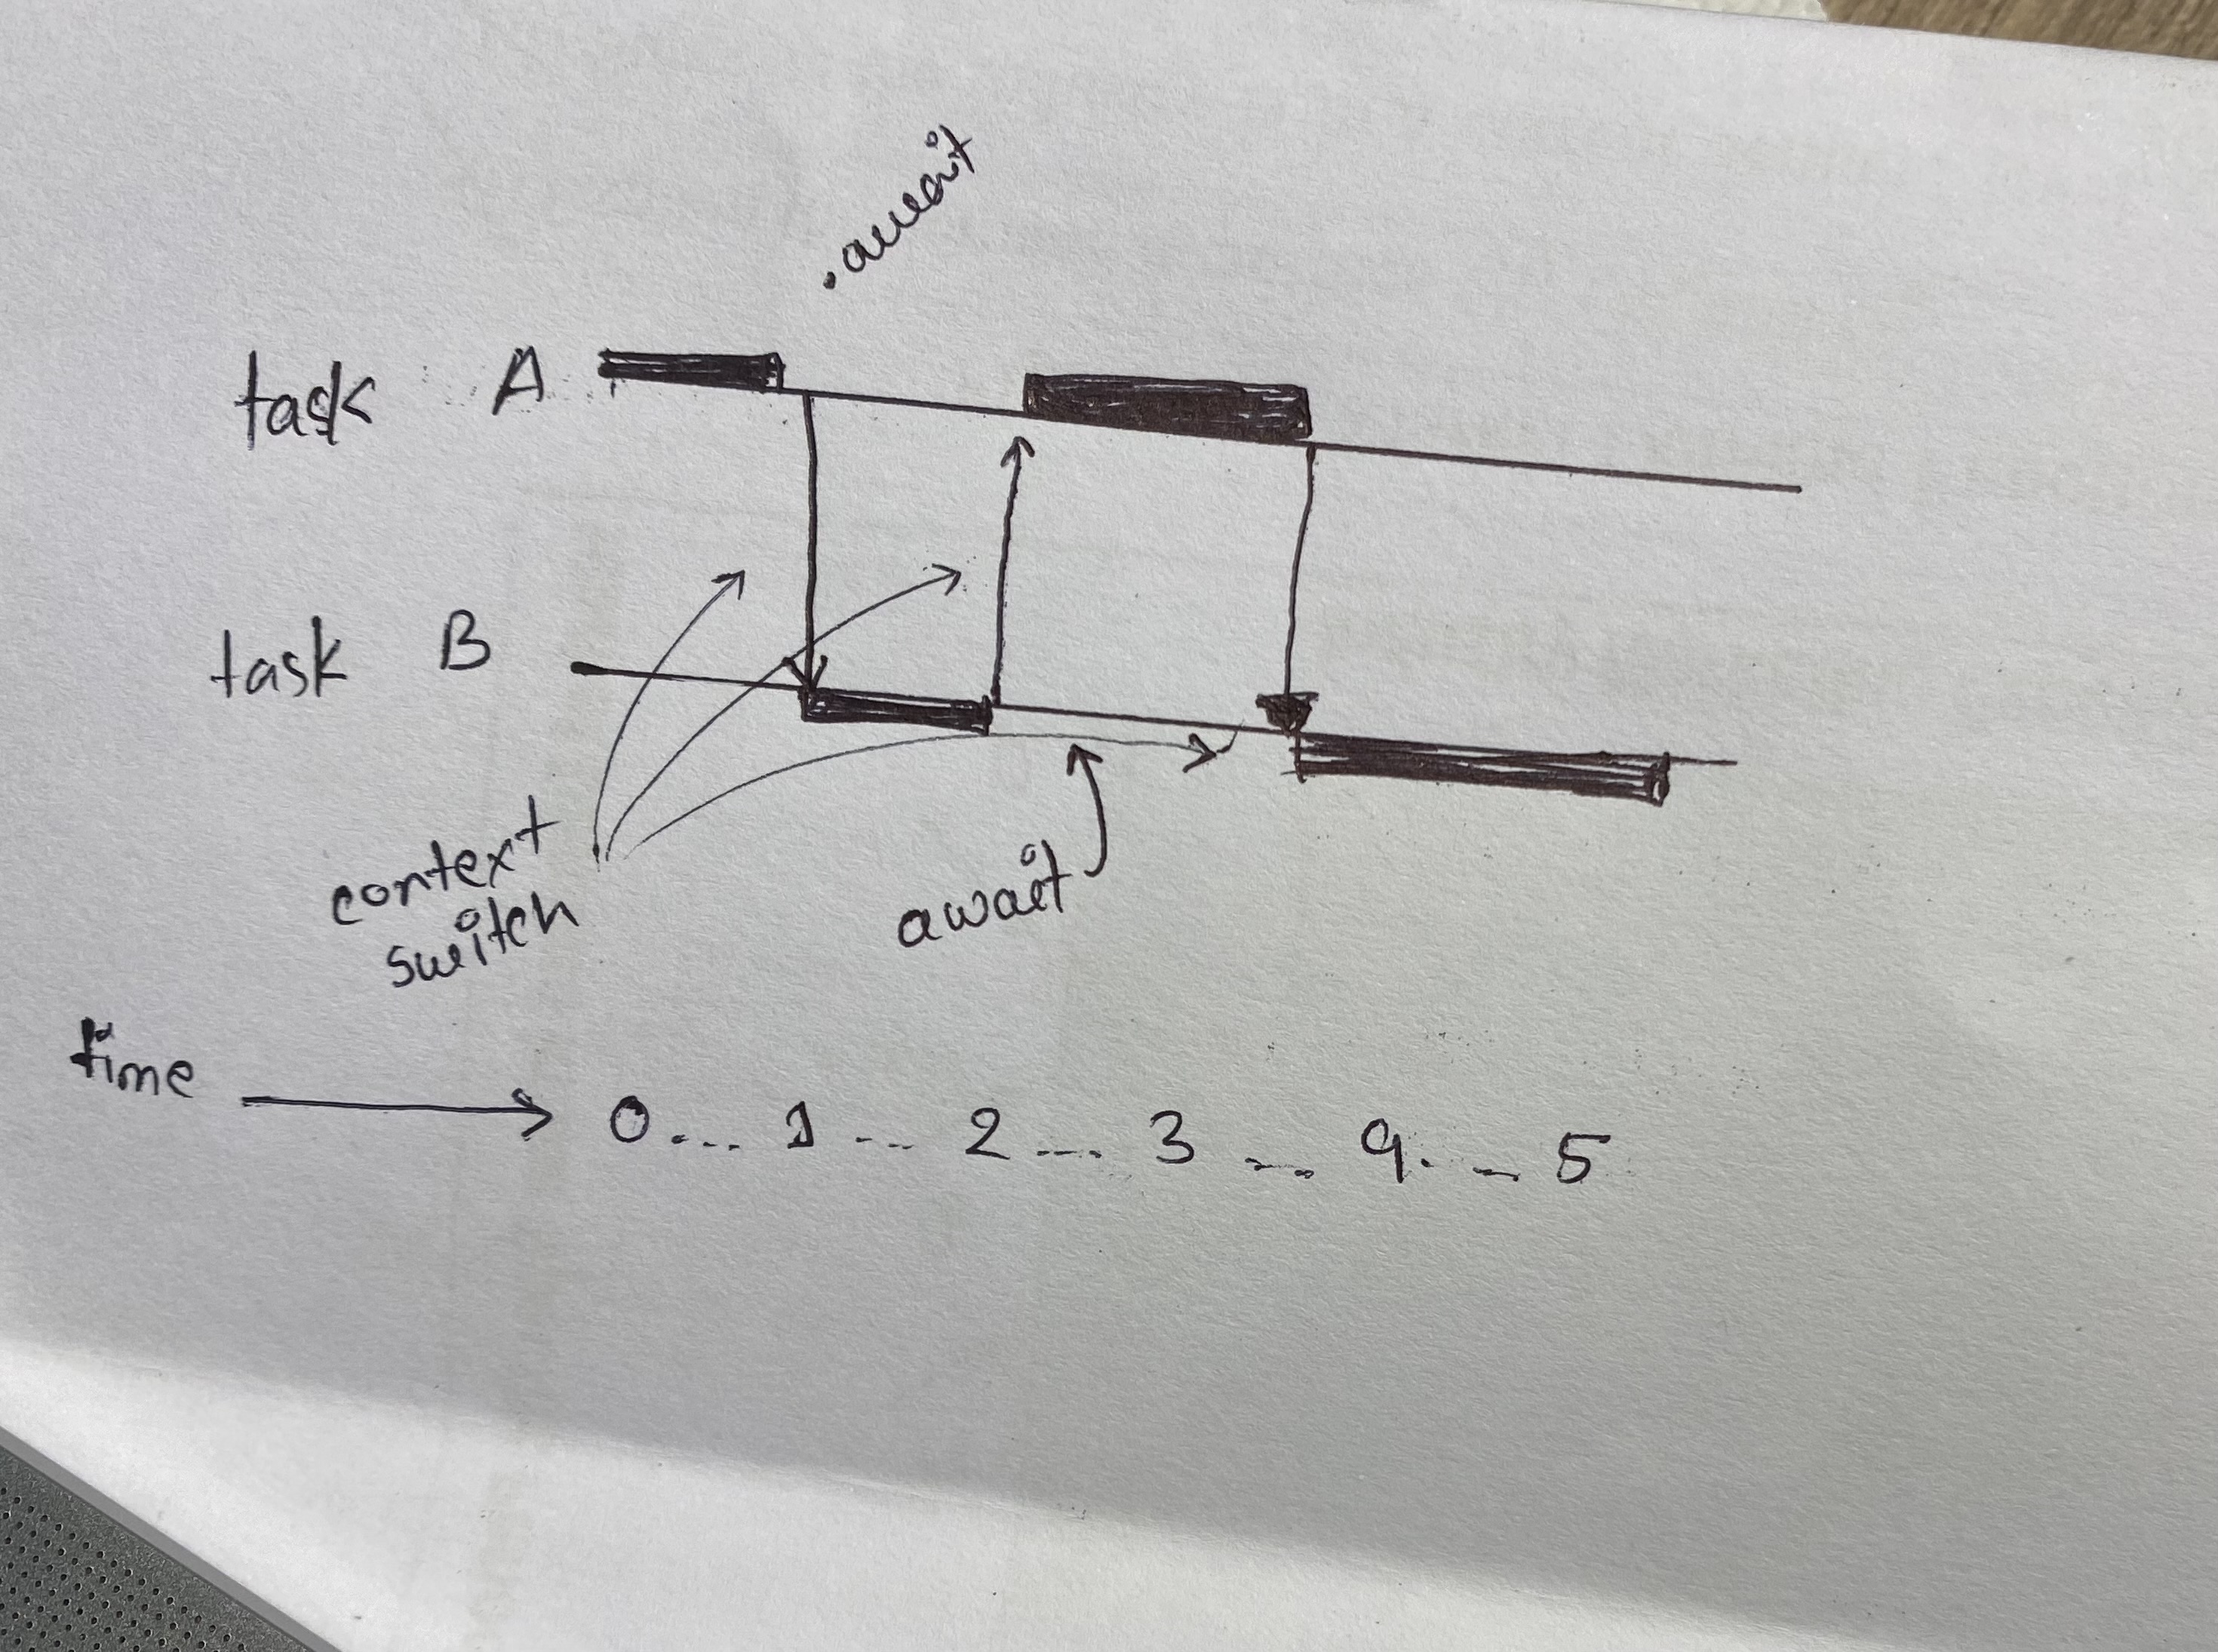 .await
task A
task B
context
switch
await
time 0... 1 ... 2 ... 3 ... 9. ... 5